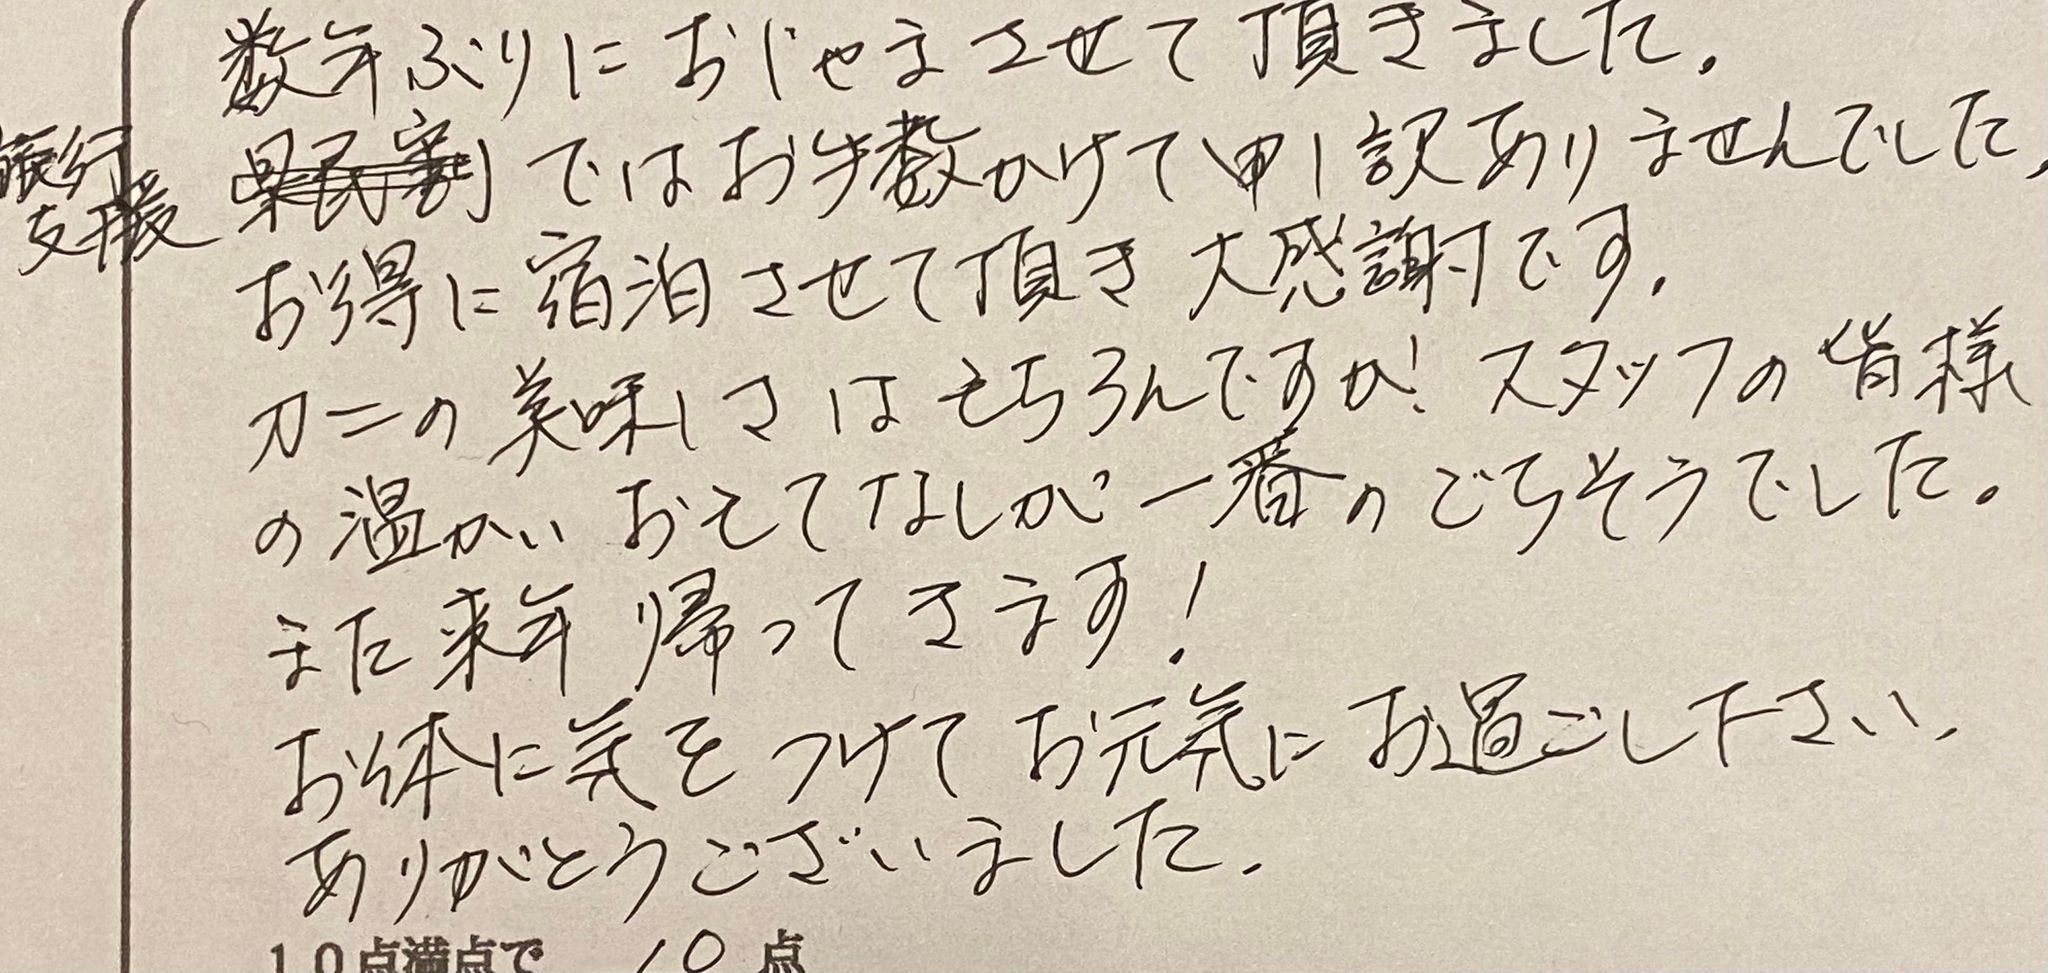 数年ぶりにおじゃまさせて頂きました。
旅行
支援
県民割ではお手数かけて申し訳ありませんでした、
お得に宿泊させて頂き大感謝です。
カニの美味しさはもちろんですが! スタッフの皆様
の温かいおもてなしが一番のごちそうでした。
また来年帰ってきます!
お体に気をつけてお元気にお過ごし下さい、
ありがとうございました。
10点満点で 10 点